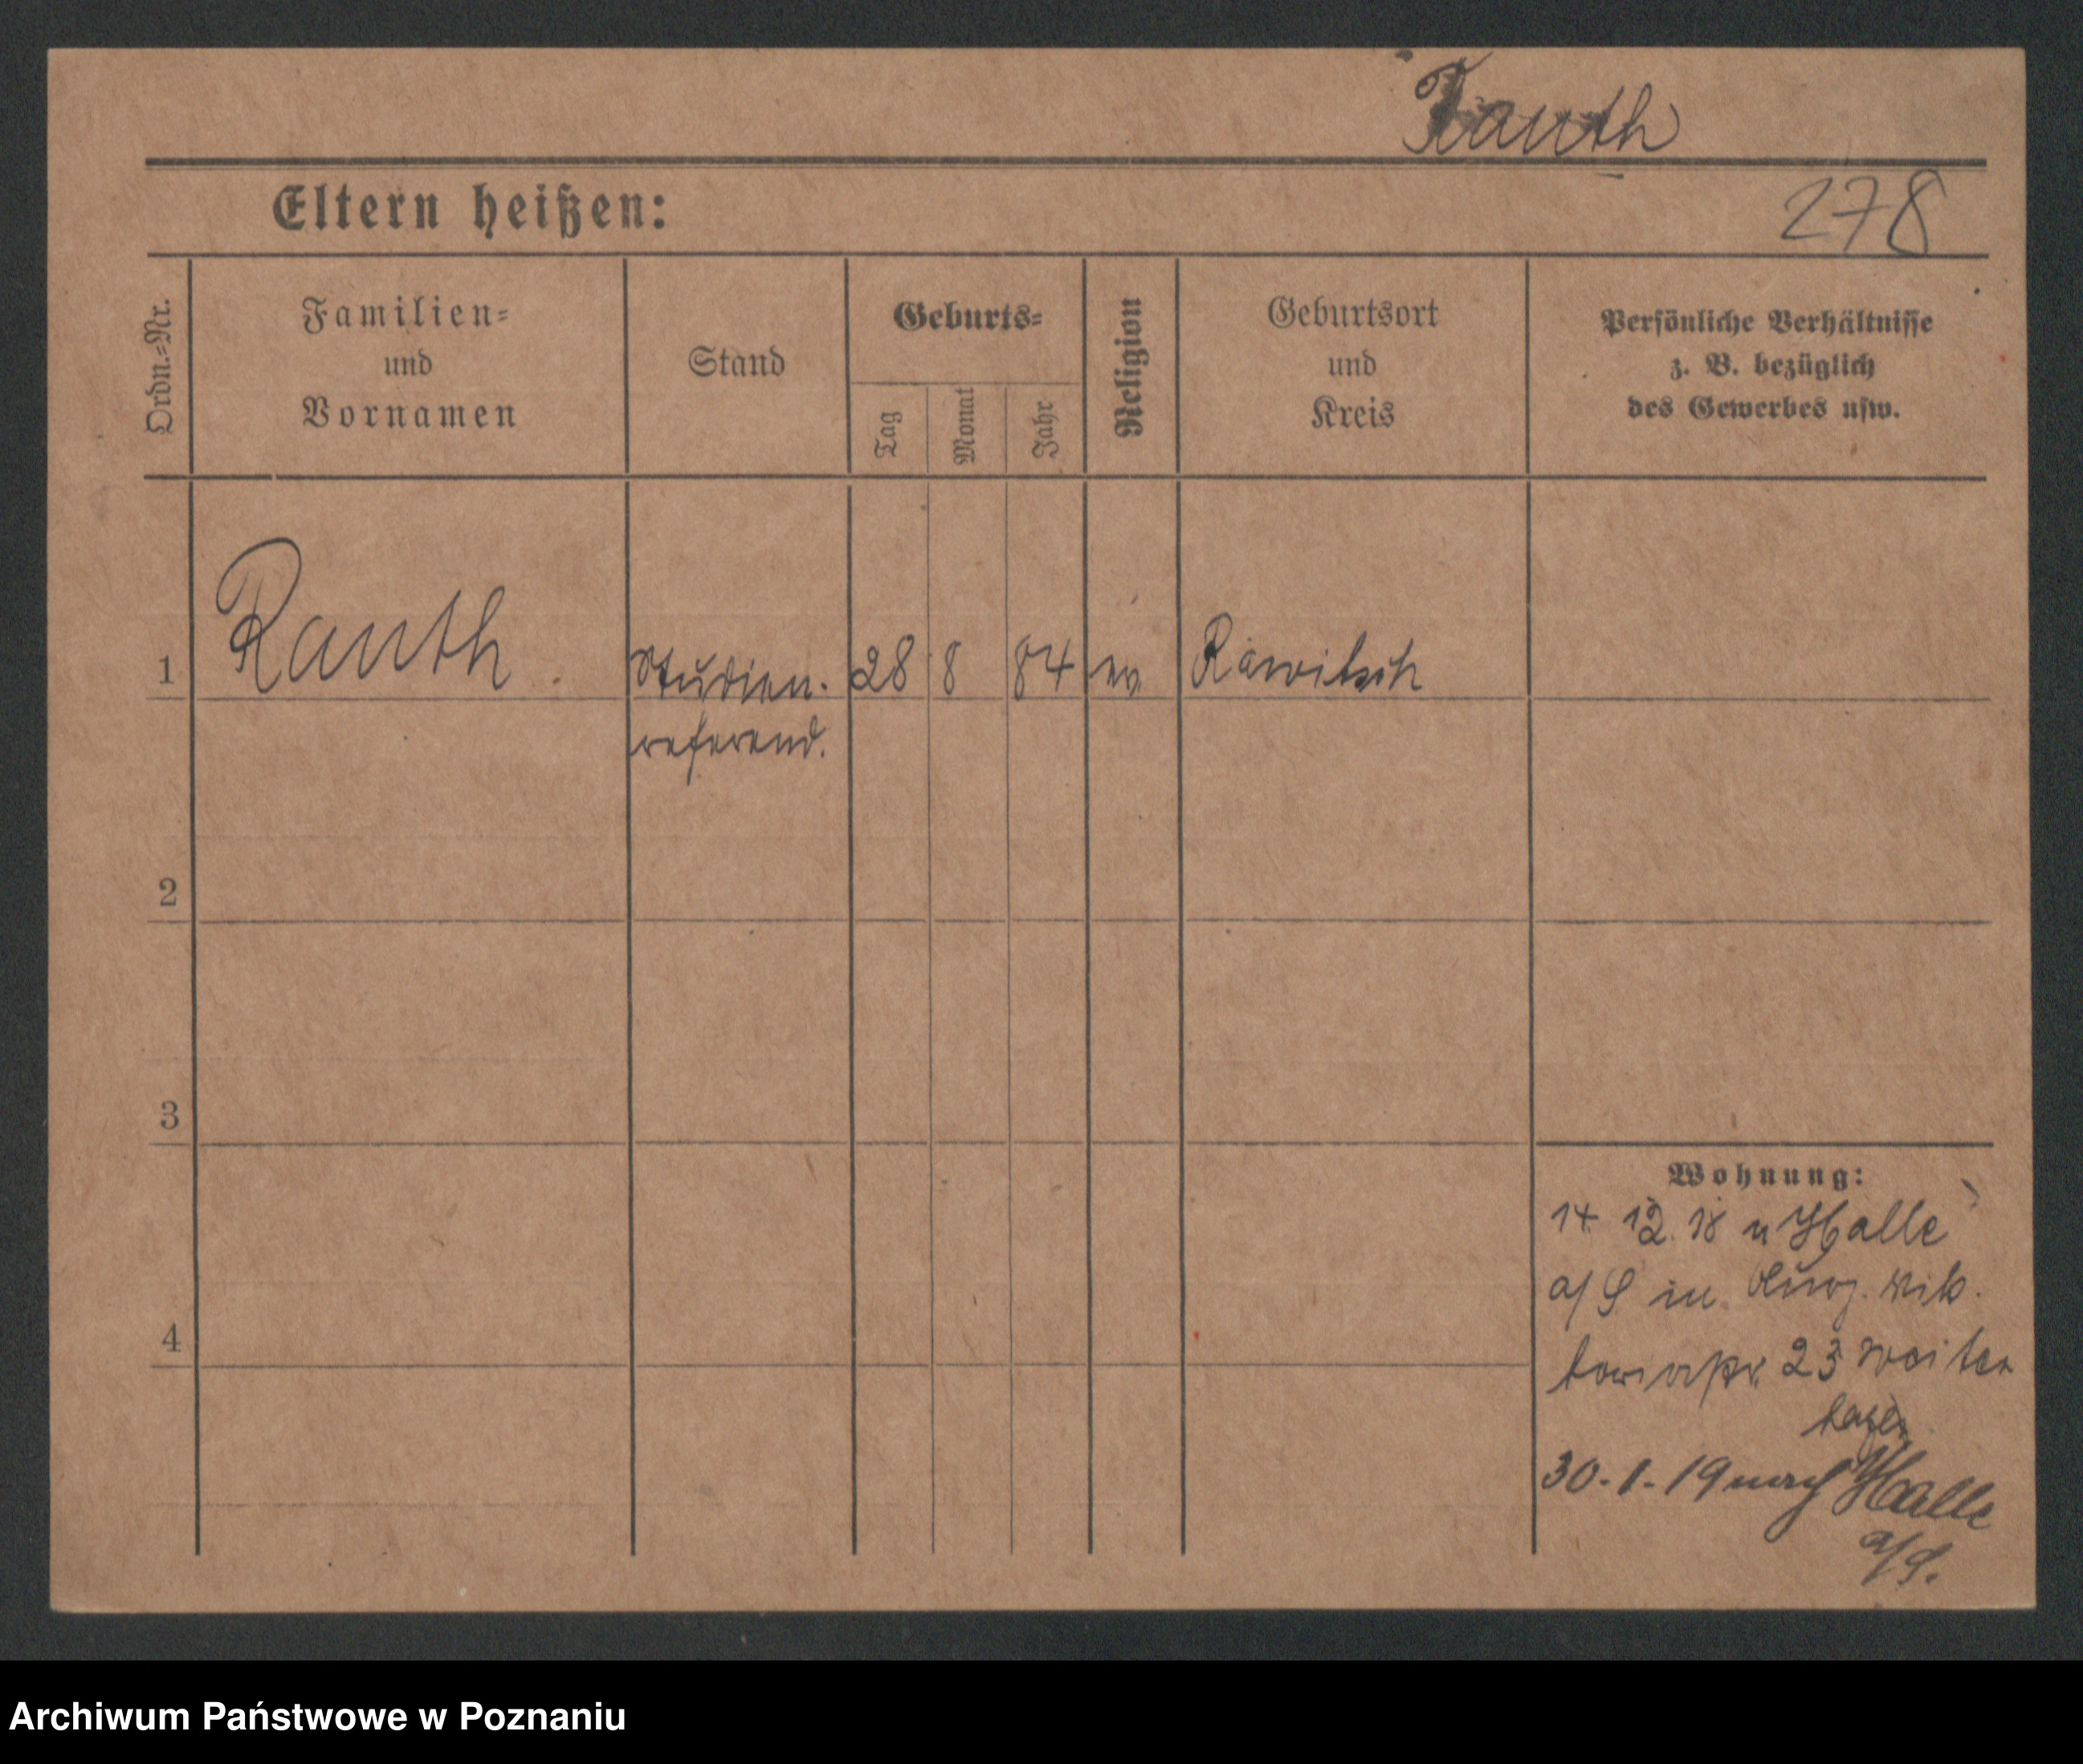 Rauth
278
Eltern heißen:
Ordn.-Nr.
Familien-
und
Vornamen
Stand
Geburts-
Tag
Monat
Jahr
Religion
Geburtsort
und
Kreis
Persönliche Verhältnisse
z. B. bezüglich
des Gewerbes usw.
1 Rauth Studien- 28 8 84 ev Rawitsch
referend.
2
3
4
Wohnung:
14 12. 18 v Halle
a/S in
23
30-1-19 nach Halle
a/S.
Archiwum Państwowe w Poznaniu